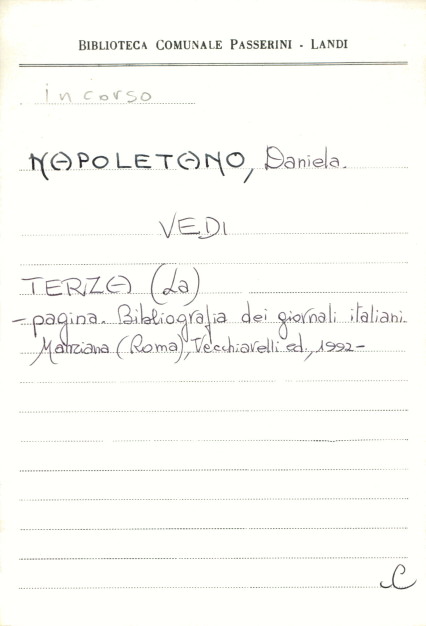 BIBLIOTECA COMUNALE PASSERINI - LANDI
in corso
NAPOLETANO, Daniela.
VEDI
TERZA (La)
- pagina. Bibliografia dei giornali italiani.
Manziana (Roma), Vecchiarelli ed., 1992-
C